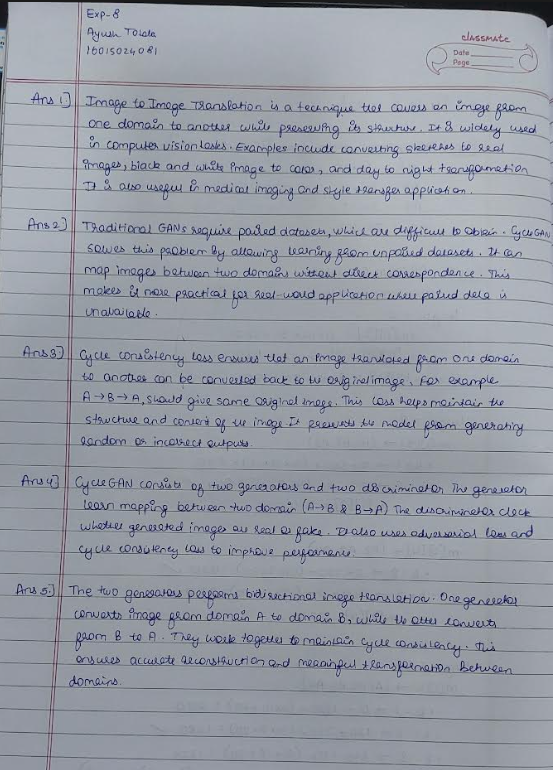 Exp-8
Ayush Tokale
16015024081
classmate
Date
Page
Ans 1] Image to Image Translation is a technique that convers an image from
one domain to another while preserving its structure. It is widely used
in computer vision tasks. Examples include converting sketches to real
images, black and white image to color, and day to night transformation
It is also useful in medical imaging and style transfer application.
Ans 2] Traditional GANs require paired datasets, which are difficult to obtain. CycleGAN
solves this problem by allowing learning from unpaired datasets. It can
map images between two domains without direct correspondence. This
makes it more practical for real-world application where paired data is
unavailable.
Ans 3] Cycle consistency loss ensures that an image translated from one domain
to another can be converted back to the original image. For example
A→B→A, should give same original image. This loss helps maintain the
structure and content of the image It prevents the model from generating
random or incorrect outputs.
Ans 4] CycleGAN consists of two generators and two discriminator The generator
learn mapping between two domain (A→B & B→A) The discriminator check
whether generated images are real or fake. It also uses adversarial loss and
cycle consistency loss to improve performance.
Ans 5.] The two generators performs bidirectional image translation. One generator
converts image from domain A to domain B, while the other converts
from B to A. They work together to maintain cycle consistency. This
ensures accurate reconstruction and meaningful transformation between
domains.